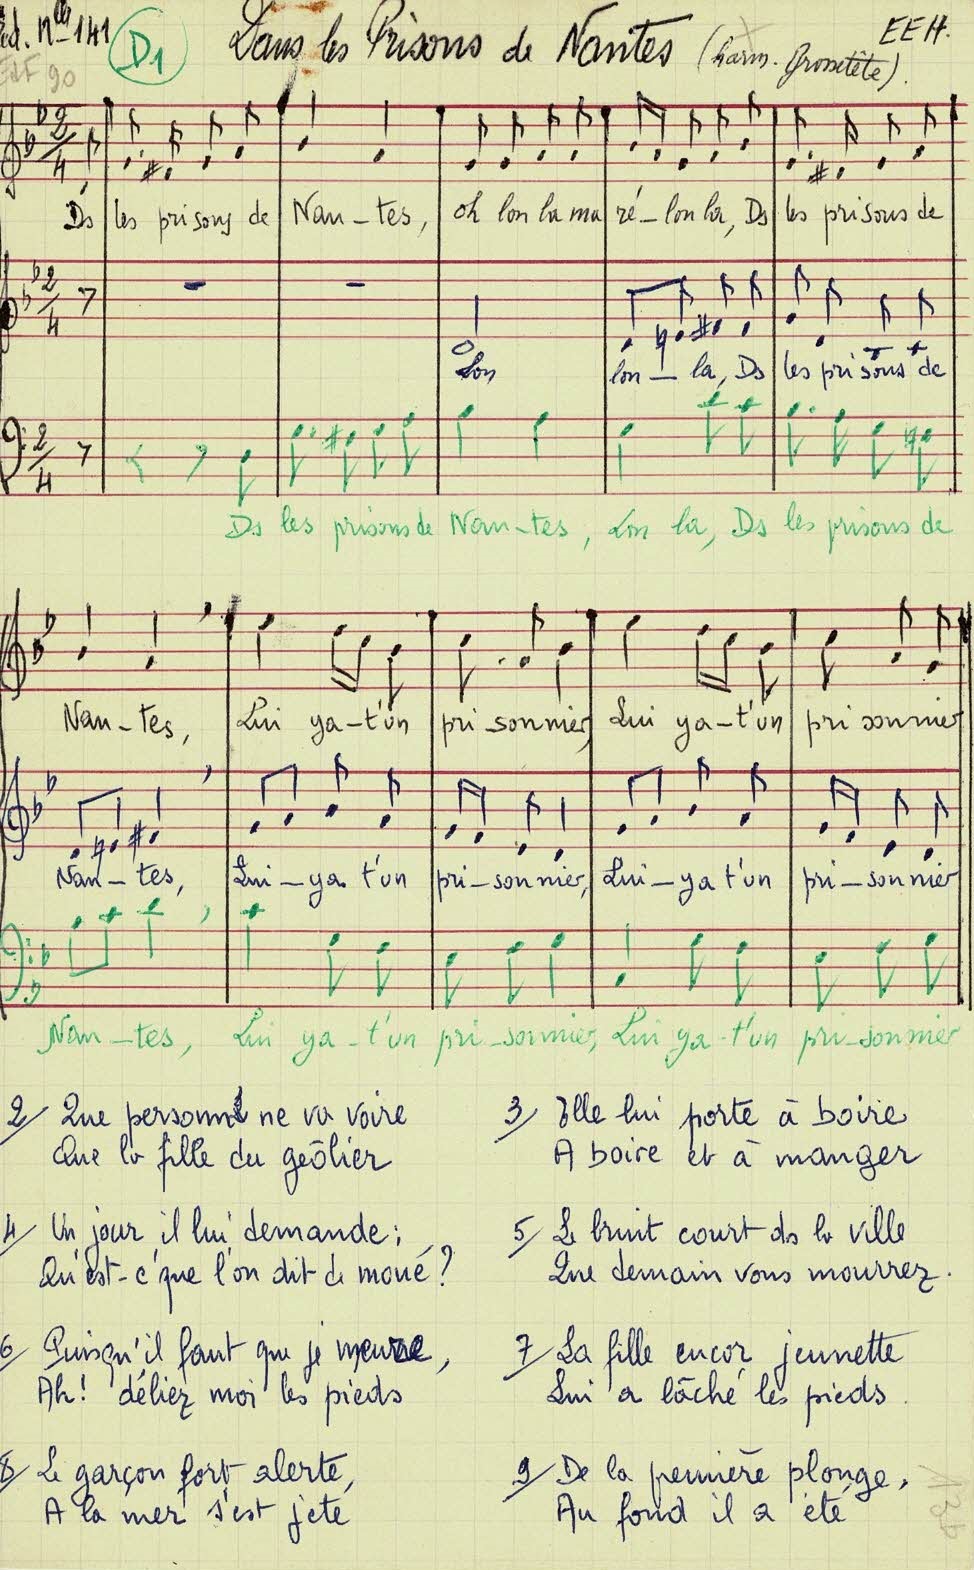 éd. nº 141 D1 Dans les Prisons de Nantes (harm. Grossetête). EEH.
EdF 90
2/4
Ds les prisons de Nan-tes, oh lon la ma ré-lon la, Ds les prisons de
2/4
Lon lon - la, Ds les prisons de
2/4
Ds les prisons de Nan-tes, Lon la, Ds les prisons de
Nan-tes, Lui ya-t'un pri sonnier, Lui ya-t'un pri sonnier
Nan-tes, Lui-ya t'un pri-sonnier, Lui-ya t'un pri-sonnier
Nan-tes, Lui ya-t'un pri-sonnier, Lui ya-t'un pri-sonnier
2/ Que personne ne va voire
Que la fille du geôlier
3/ Elle lui porte à boire
A boire et à manger
4/ Un jour il lui demande:
Qu'est-c'que l'on dit de moué?
5/ Le bruit court ds la ville
Que demain vous mourrez.
6/ Puisqu'il faut que je meure,
Ah! déliez moi les pieds
7/ La fille encor jeunette
Lui a lâché les pieds.
8/ Le garçon fort alerte,
A la mer s'est jeté
9/ De la première plonge,
Au fond il a été